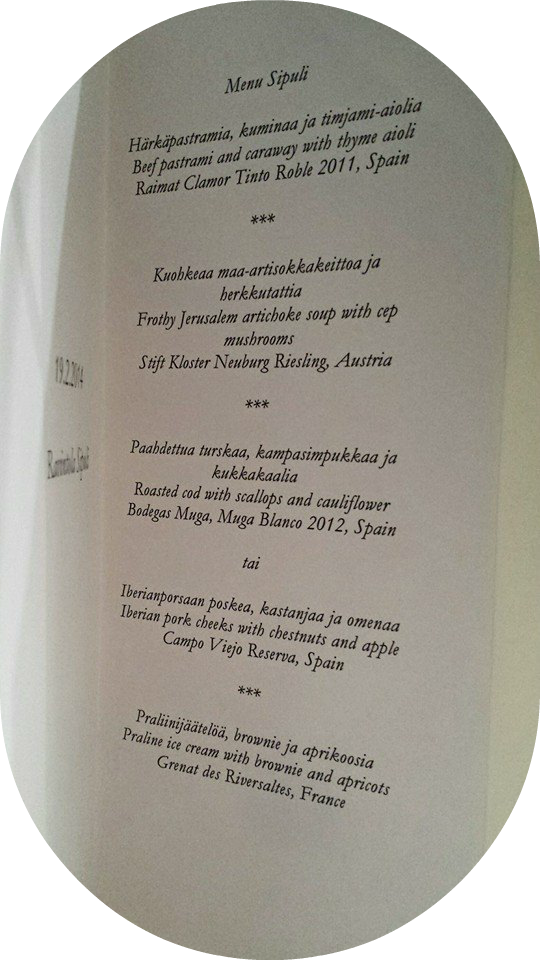 Menu Sipuli
Härkäpastramia, kuminaa ja timjami-aiolia
Beef pastrami and caraway with thyme aioli
Raimat Clamor Tinto Roble 2011, Spain
***
Kuohkeaa maa-artisokkakeittoa ja
herkkutattia
Frothy Jerusalem artichoke soup with cep
mushrooms
Stift Kloster Neuburg Riesling, Austria
***
Paahdettua turskaa, kampasimpukkaa ja
kukkakaalia
Roasted cod with scallops and cauliflower
Bodegas Muga, Muga Blanco 2012, Spain
tai
Iberianporsaan poskea, kastanjaa ja omenaa
Iberian pork cheeks with chestnuts and apple
Campo Viejo Reserva, Spain
***
Praliinijäätelöä, brownie ja aprikoosia
Praline ice cream with brownie and apricots
Grenat des Riversaltes, France
19.2.2014
Ravintola Sipuli